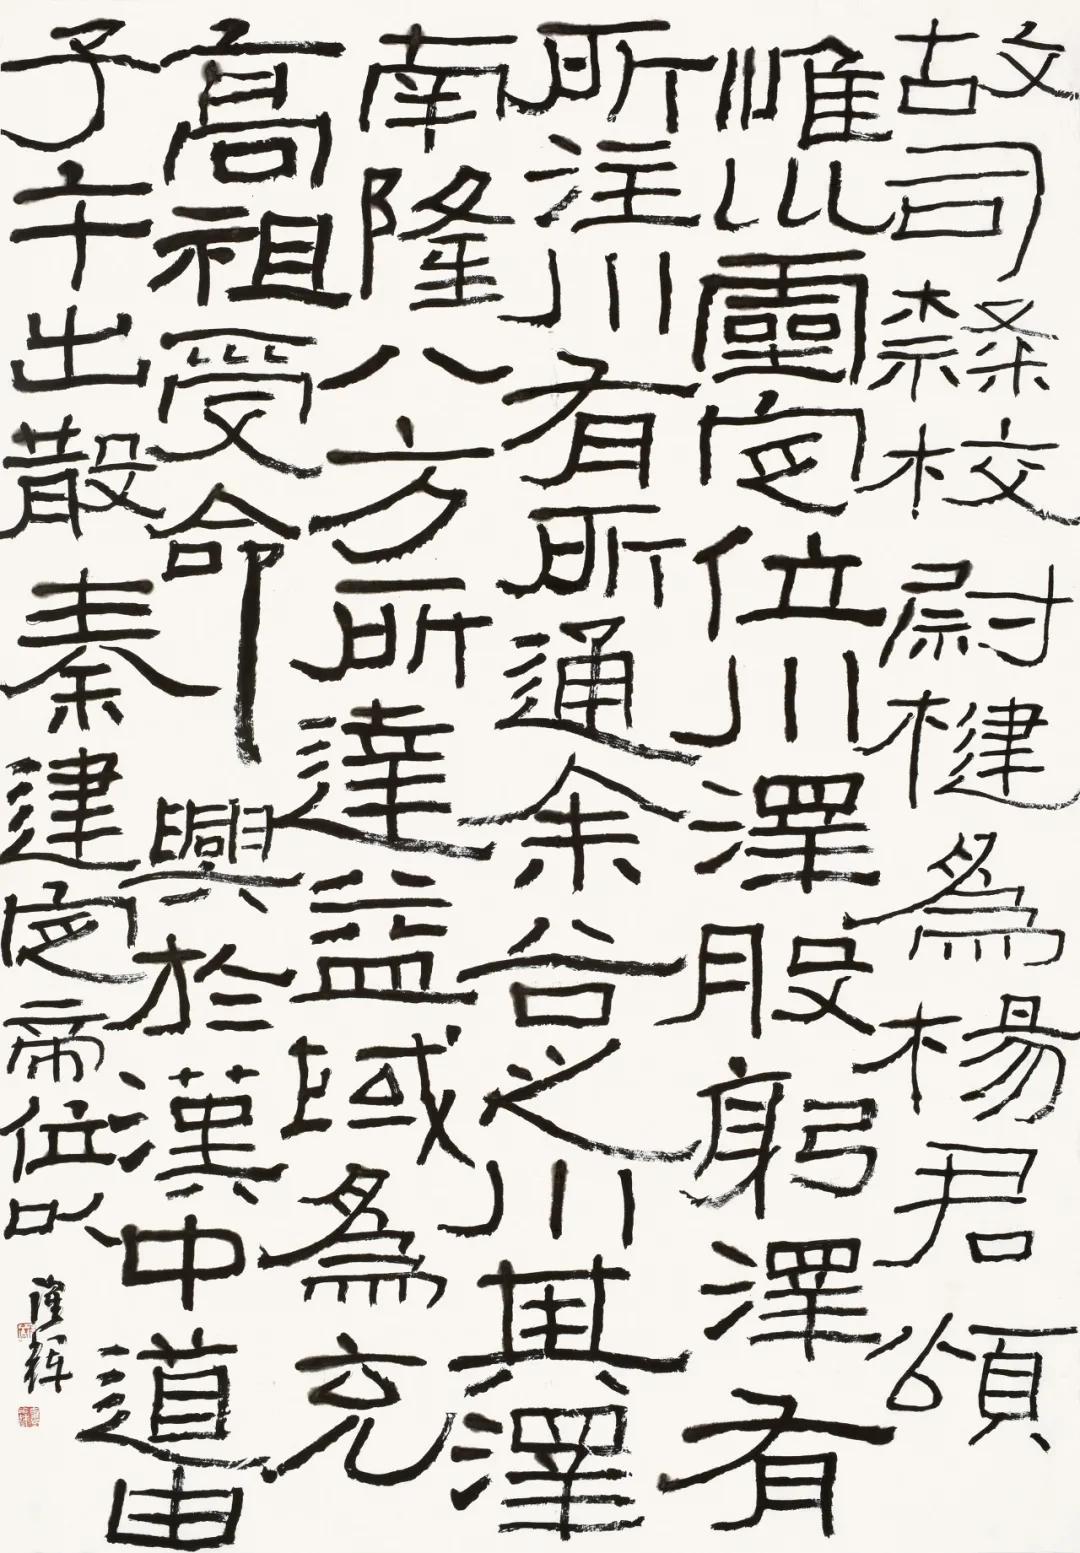 故司隸校尉楗爲楊君頌
惟巛靈定位川澤股躬澤有
所注川有所通余谷之川其澤
南隆八方所達益域爲充
高祖受命興於漢中道由
子午出散秦建定帝位以